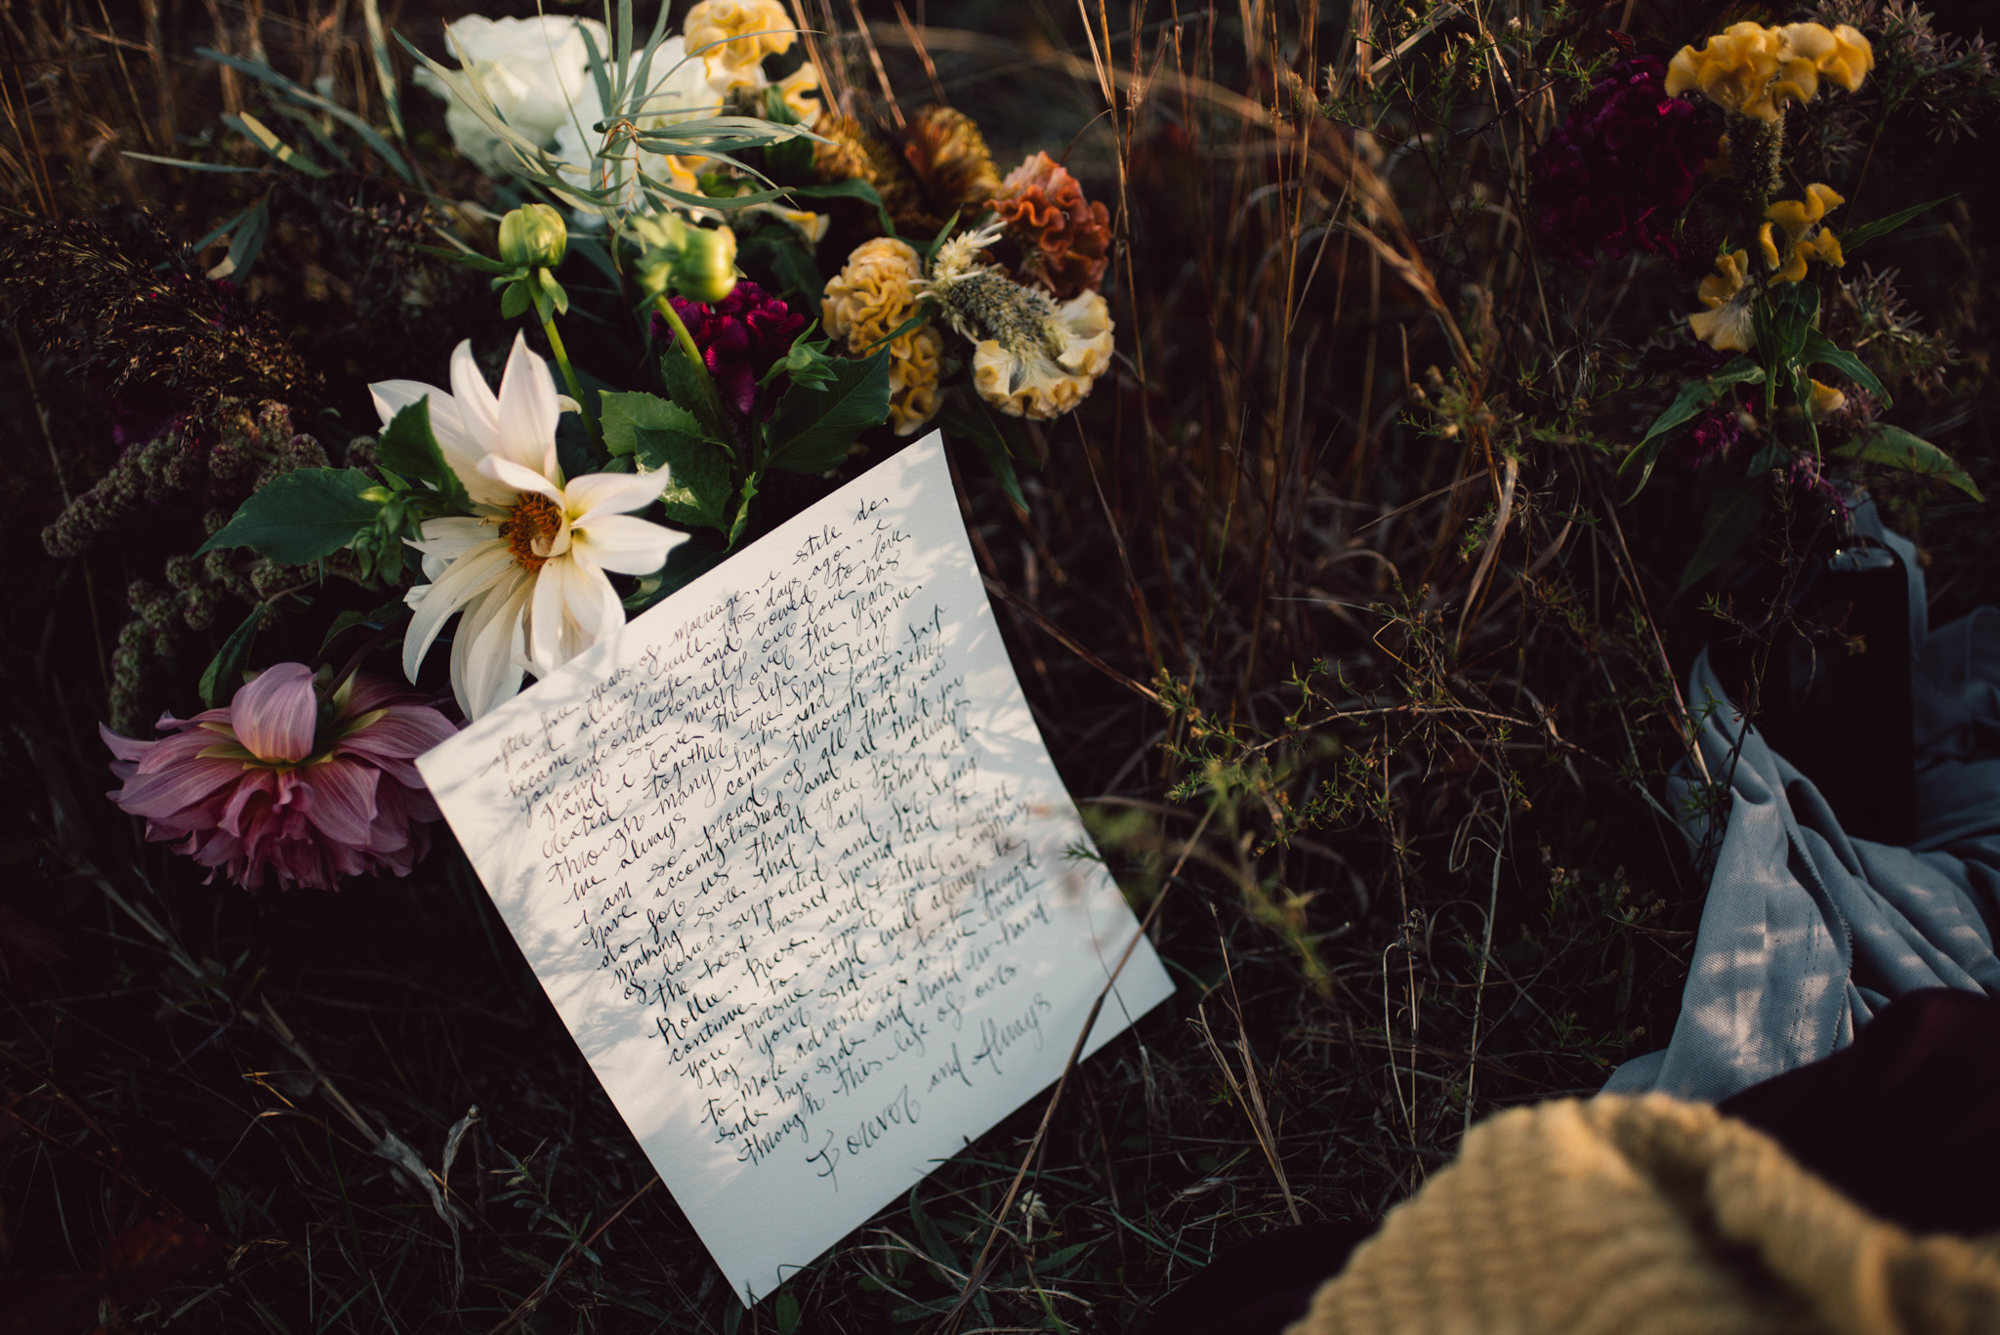 after five years of marriage, i still do
and always will. 1,905 days ago, i
became your wife and vowed to love
you unconditionally. our love has
grown so much over the years
and i love the life we have
created together. we have been
through many highs and lows, but
we always come through together.
i am so proud of all that you
have accomplished and all that you
do for us. thank you for always
making sure that i am taken care
of, loved, supported and for being
the best basset hound dad to
Rollie, Reese, and Esther. i will
continue to support you in anything
you pursue and will always be
by your side. i look forward
to more adventures as we walk
side by side and hand-in-hand
through this life of ours
Forever and Always